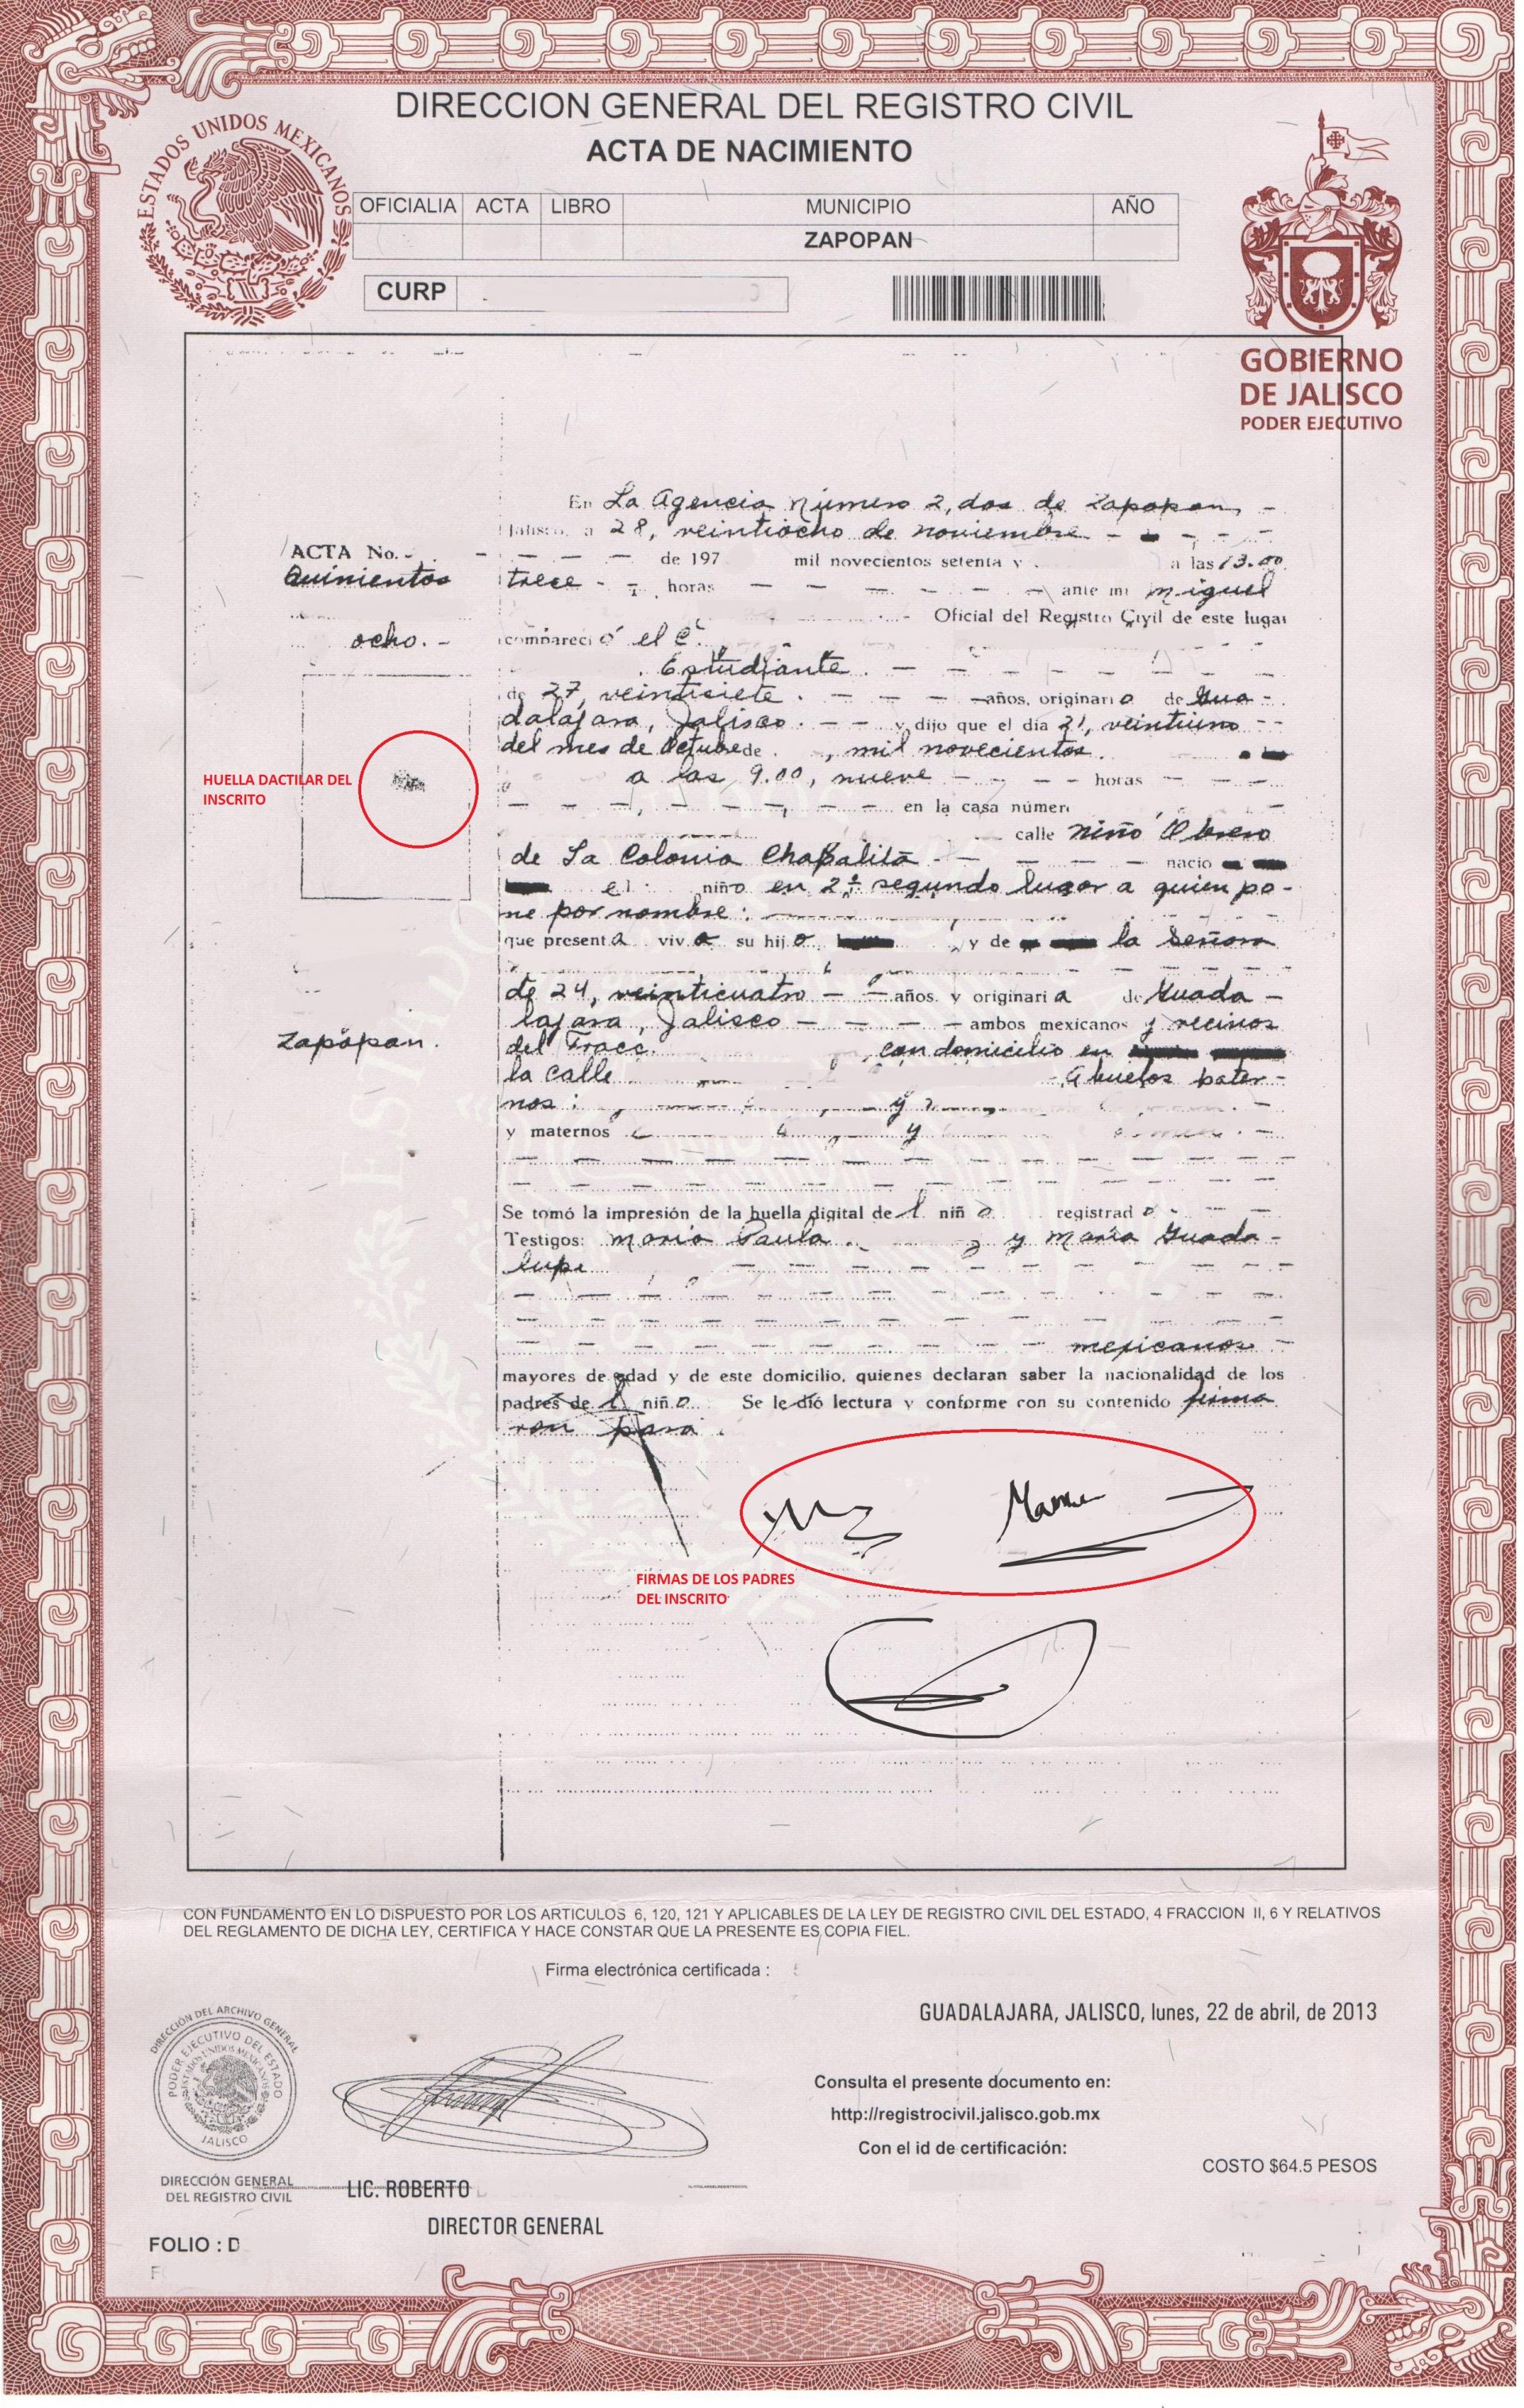 DIRECCION GENERAL DEL REGISTRO CIVIL
ACTA DE NACIMIENTO
ESTADOS UNIDOS MEXICANOS
OFICIALIA ACTA LIBRO MUNICIPIO AÑO
ZAPOPAN
CURP
GOBIERNO
DE JALISCO
PODER EJECUTIVO
En La Agencia número 2, dos de Zapopan,
Jalisco, a 28, veintiocho de noviembre
ACTA No.- de 197 mil novecientos setenta y a las 13.00
Quinientos trece horas ante mi Miguel
Oficial del Registro Civil de este lugar
ocho.- compareció el C.
Estudiante.
de 27, veintisiete. años, originario de Gua-
dalajara, Jalisco. y dijo que el día 21, veintiuno
del mes de Octubre de , mil novecientos
a las 9.00, nueve horas
HUELLA DACTILAR DEL
INSCRITO
en la casa númer
calle Niño Obrero
de La Colonia Chapalita nacio
el niño en 2º segundo lugar a quien po-
ne por nombre:
que presenta viva su hijo y de la Señora
de 24, veinticuatro años y originaria de Guada-
lajara, Jalisco ambos mexicanos y vecinos
Zapopan.
del Fracc. con domicilio en
la calle Abuelos pater-
nos: y
y maternos y
Se tomó la impresión de la huella digital del niño registrado
Testigos: María Paula y María Guada-
lupe
mexicanos
mayores de edad y de este domicilio, quienes declaran saber la nacionalidad de los
padres del niño Se le dió lectura y conforme con su contenido firma
ron para
FIRMAS DE LOS PADRES
DEL INSCRITO
CON FUNDAMENTO EN LO DISPUESTO POR LOS ARTICULOS 6, 120, 121 Y APLICABLES DE LA LEY DE REGISTRO CIVIL DEL ESTADO, 4 FRACCION II, 6 Y RELATIVOS
DEL REGLAMENTO DE DICHA LEY, CERTIFICA Y HACE CONSTAR QUE LA PRESENTE ES COPIA FIEL.
Firma electrónica certificada :
GUADALAJARA, JALISCO, lunes, 22 de abril, de 2013
DIRECCIÓN DEL ARCHIVO GENERAL
PODER EJECUTIVO DEL ESTADO
ESTADOS UNIDOS MEXICANOS
JALISCO
Consulta el presente documento en:
http://registrocivil.jalisco.gob.mx
Con el id de certificación:
COSTO $64.5 PESOS
DIRECCIÓN GENERAL
DEL REGISTRO CIVIL
LIC. ROBERTO
DIRECTOR GENERAL
FOLIO : D